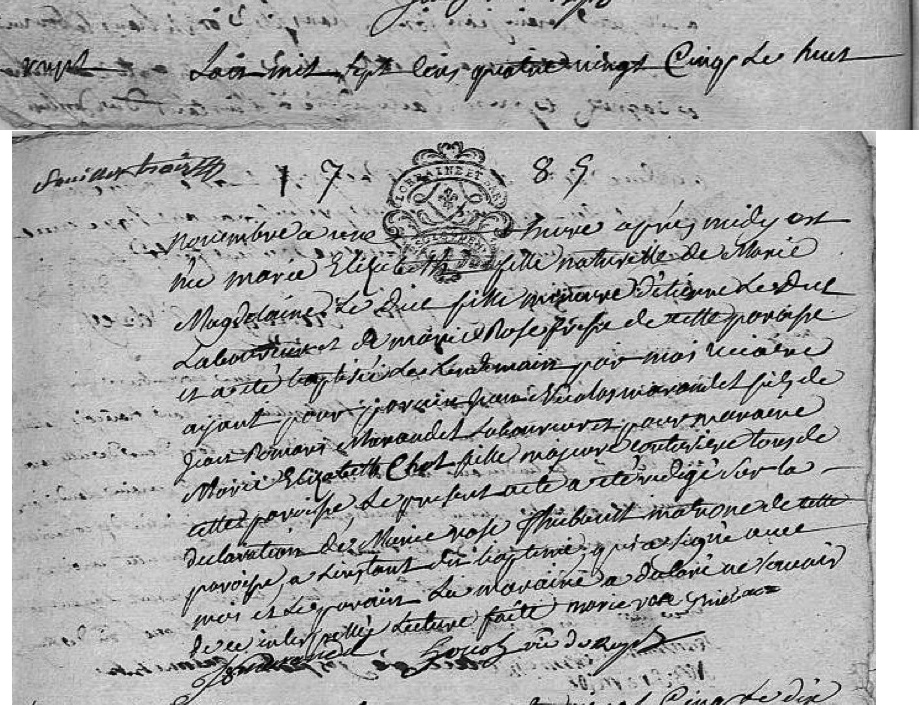 rupt Lan mil sept cens quatre vingt Cinq Le huit
feuillet trois
1785
LORRAINE ET BAR
novembre a une heure après midy est
née marie Elizabeth fille naturelle de Marie
Magdelaine Le Duc fille mineure d'étienne Le Duc
Laboureur et de marie Rose de cette paroisse
et a été baptisée Le Lendemain par moi vicaire
ayant pour parain Jean Nicolas marandet fils de
Jean Romari Marandet Laboureur et pour maraine
Marie Elizabeth Chot fille majeure couturière tous de
cette paroisse Le present acte a été redigé sur la
declaration de Marie rose Thiebaut matrone de cette
paroisse, a L'instant du bapteme, qui a signé avec
moi et Le parain La maraine a declaré ne scavoir
de ce interpellée Lecture faite marie rose thiebaut
vic du Rupt
Cinq Le dix